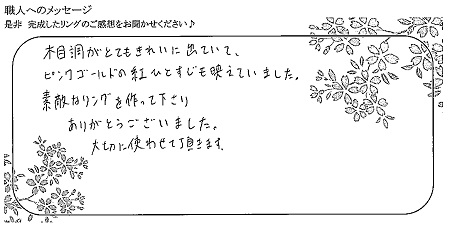 職人へのメッセージ
是非 完成したリングのご感想をお聞かせください♪
木目調がとてもきれいに出ていて、
ピンクゴールドの紅ひとすじも映えていました。
素敵なリングを作って下さり
ありがとうございました。
大切に使わせて頂きます